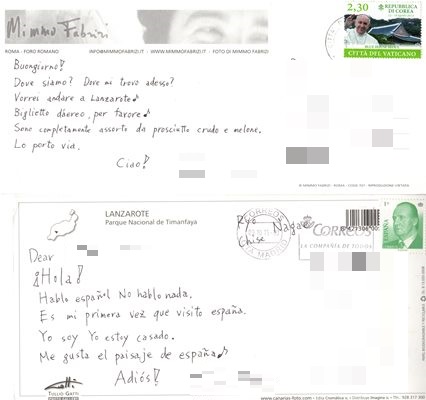 Mimmo Fabrizi
ROMA - FORO ROMANO INFO@MIMMOFABRIZI.IT - WWW.MIMMOFABRIZI.IT - FOTO DI MIMMO FABRIZI
2,30 REPUBBLICA DI COREA
CITTÀ DEL VATICANO
Buongiorno!
Dove siamo? Dove mi trovo adesso?
Vorrei andare a Lanzarote♪
Biglietto d'aereo, per favore♪
Sono completamente assorto da prosciutto crudo e melone.
Lo porto via.
Ciao!
LANZAROTE
Parque Nacional de Timanfaya
CORREOS
Ryo Nagase
Chise
CORREOS
LA COMPAÑIA DE TODOS
Dear
¡Hola!
Hablo español No hablo nada.
Es mi primera vez que visito españa.
Yo soy Yo estoy casado.
Me gusta el paisaje de españa♪
Adiós!
TULLIO GATTI
www.canarias-foto.com